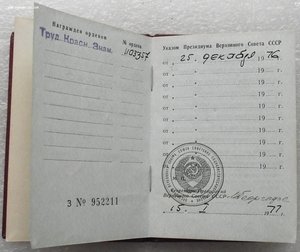 Награжден орденом
№ ордена
Труд. Красн. Знам.
1103357
З № 952211
Указом Президиума Верховного Совета СССР
от 25 декабря 1976
от " " 19
от " " 19
от " " 19
от " " 19
от " " 19
от " " 19
от " " 19
Секретарь Президиума
Верховного Совета СССР
15. I 1977